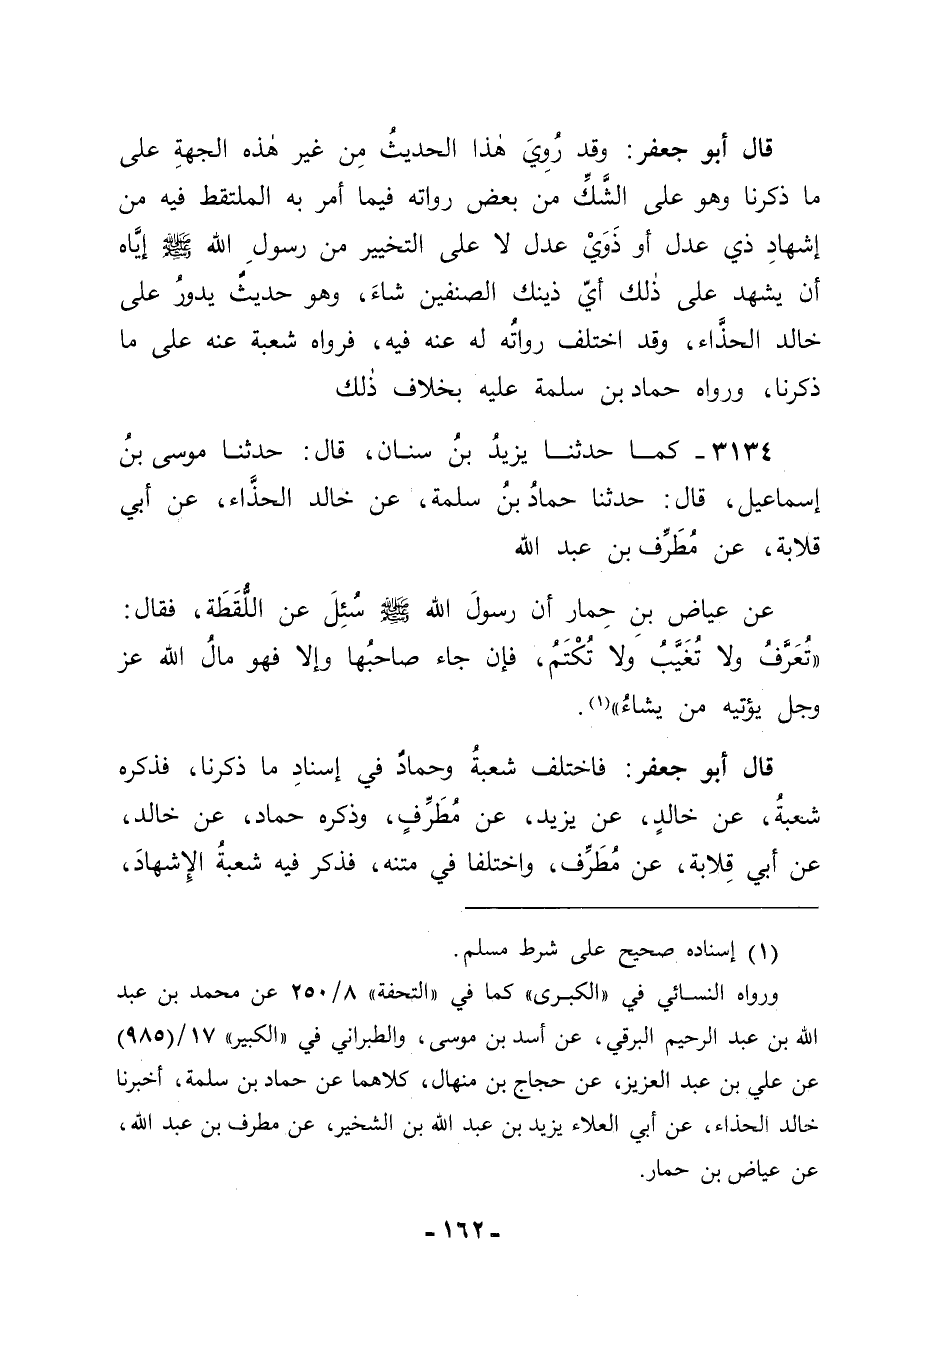 قال أبو جعفر: وقد رُوِيَ هٰذا الحديثُ مِن غير هٰذه الجهةِ على
ما ذكرنا وهو على الشَّكِّ من بعض رواته فيما أمر به الملتقط فيه من
إشهادِ ذي عدل أو ذَوَيْ عدل لا على التخيير من رسولِ الله ﷺ إيَّاه
أن يشهد على ذٰلك أيّ ذينك الصنفين شاءَ، وهو حديثٌ يدورُ على
خالد الحذَّاء، وقد اختلف رواتُه له عنه فيه، فرواه شعبة عنه على ما
ذكرنا، ورواه حماد بن سلمة عليه بخلاف ذٰلك
٣١٣٤ـ كما حدثنا يزيدُ بنُ سنان، قال: حدثنا موسى بنُ
إسماعيل، قال: حدثنا حمادُ بنُ سلمة، عن خالد الحذَّاء، عن أبي
قلابة، عن مُطَرِّف بن عبد الله
عن عياض بنِ حِمار أن رسولَ الله ﷺ سُئِلَ عن اللُّقَطَة، فقال:
«تُعَرَّفُ ولا تُغَيَّبُ ولا تُكْتَمُ، فإن جاء صاحبُها وإلا فهو مالُ الله عز
وجل يؤتيه من يشاءُ»(١).
قال أبو جعفر: فاختلف شعبةُ وحمادٌ في إسنادِ ما ذكرنا، فذكره
شعبةُ، عن خالدٍ، عن يزيد، عن مُطَرِّفٍ، وذكره حماد، عن خالد،
عن أبي قِلابة، عن مُطَرِّف، واختلفا في متنه، فذكر فيه شعبةُ الإِشهادَ،
(١) إسناده صحيح على شرط مسلم.
ورواه النسائي في «الكبرى» كما في «التحفة» ٢٥٠/٨ عن محمد بن عبد
الله بن عبد الرحيم البرقي، عن أسد بن موسى، والطبراني في «الكبير» ١٧/(٩٨٥)
عن علي بن عبد العزيز، عن حجاج بن منهال، كلاهما عن حماد بن سلمة، أخبرنا
خالد الحذاء، عن أبي العلاء يزيد بن عبد الله بن الشخير، عن مطرف بن عبد الله،
عن عياض بن حمار.
ـ ١٦٢ ـ